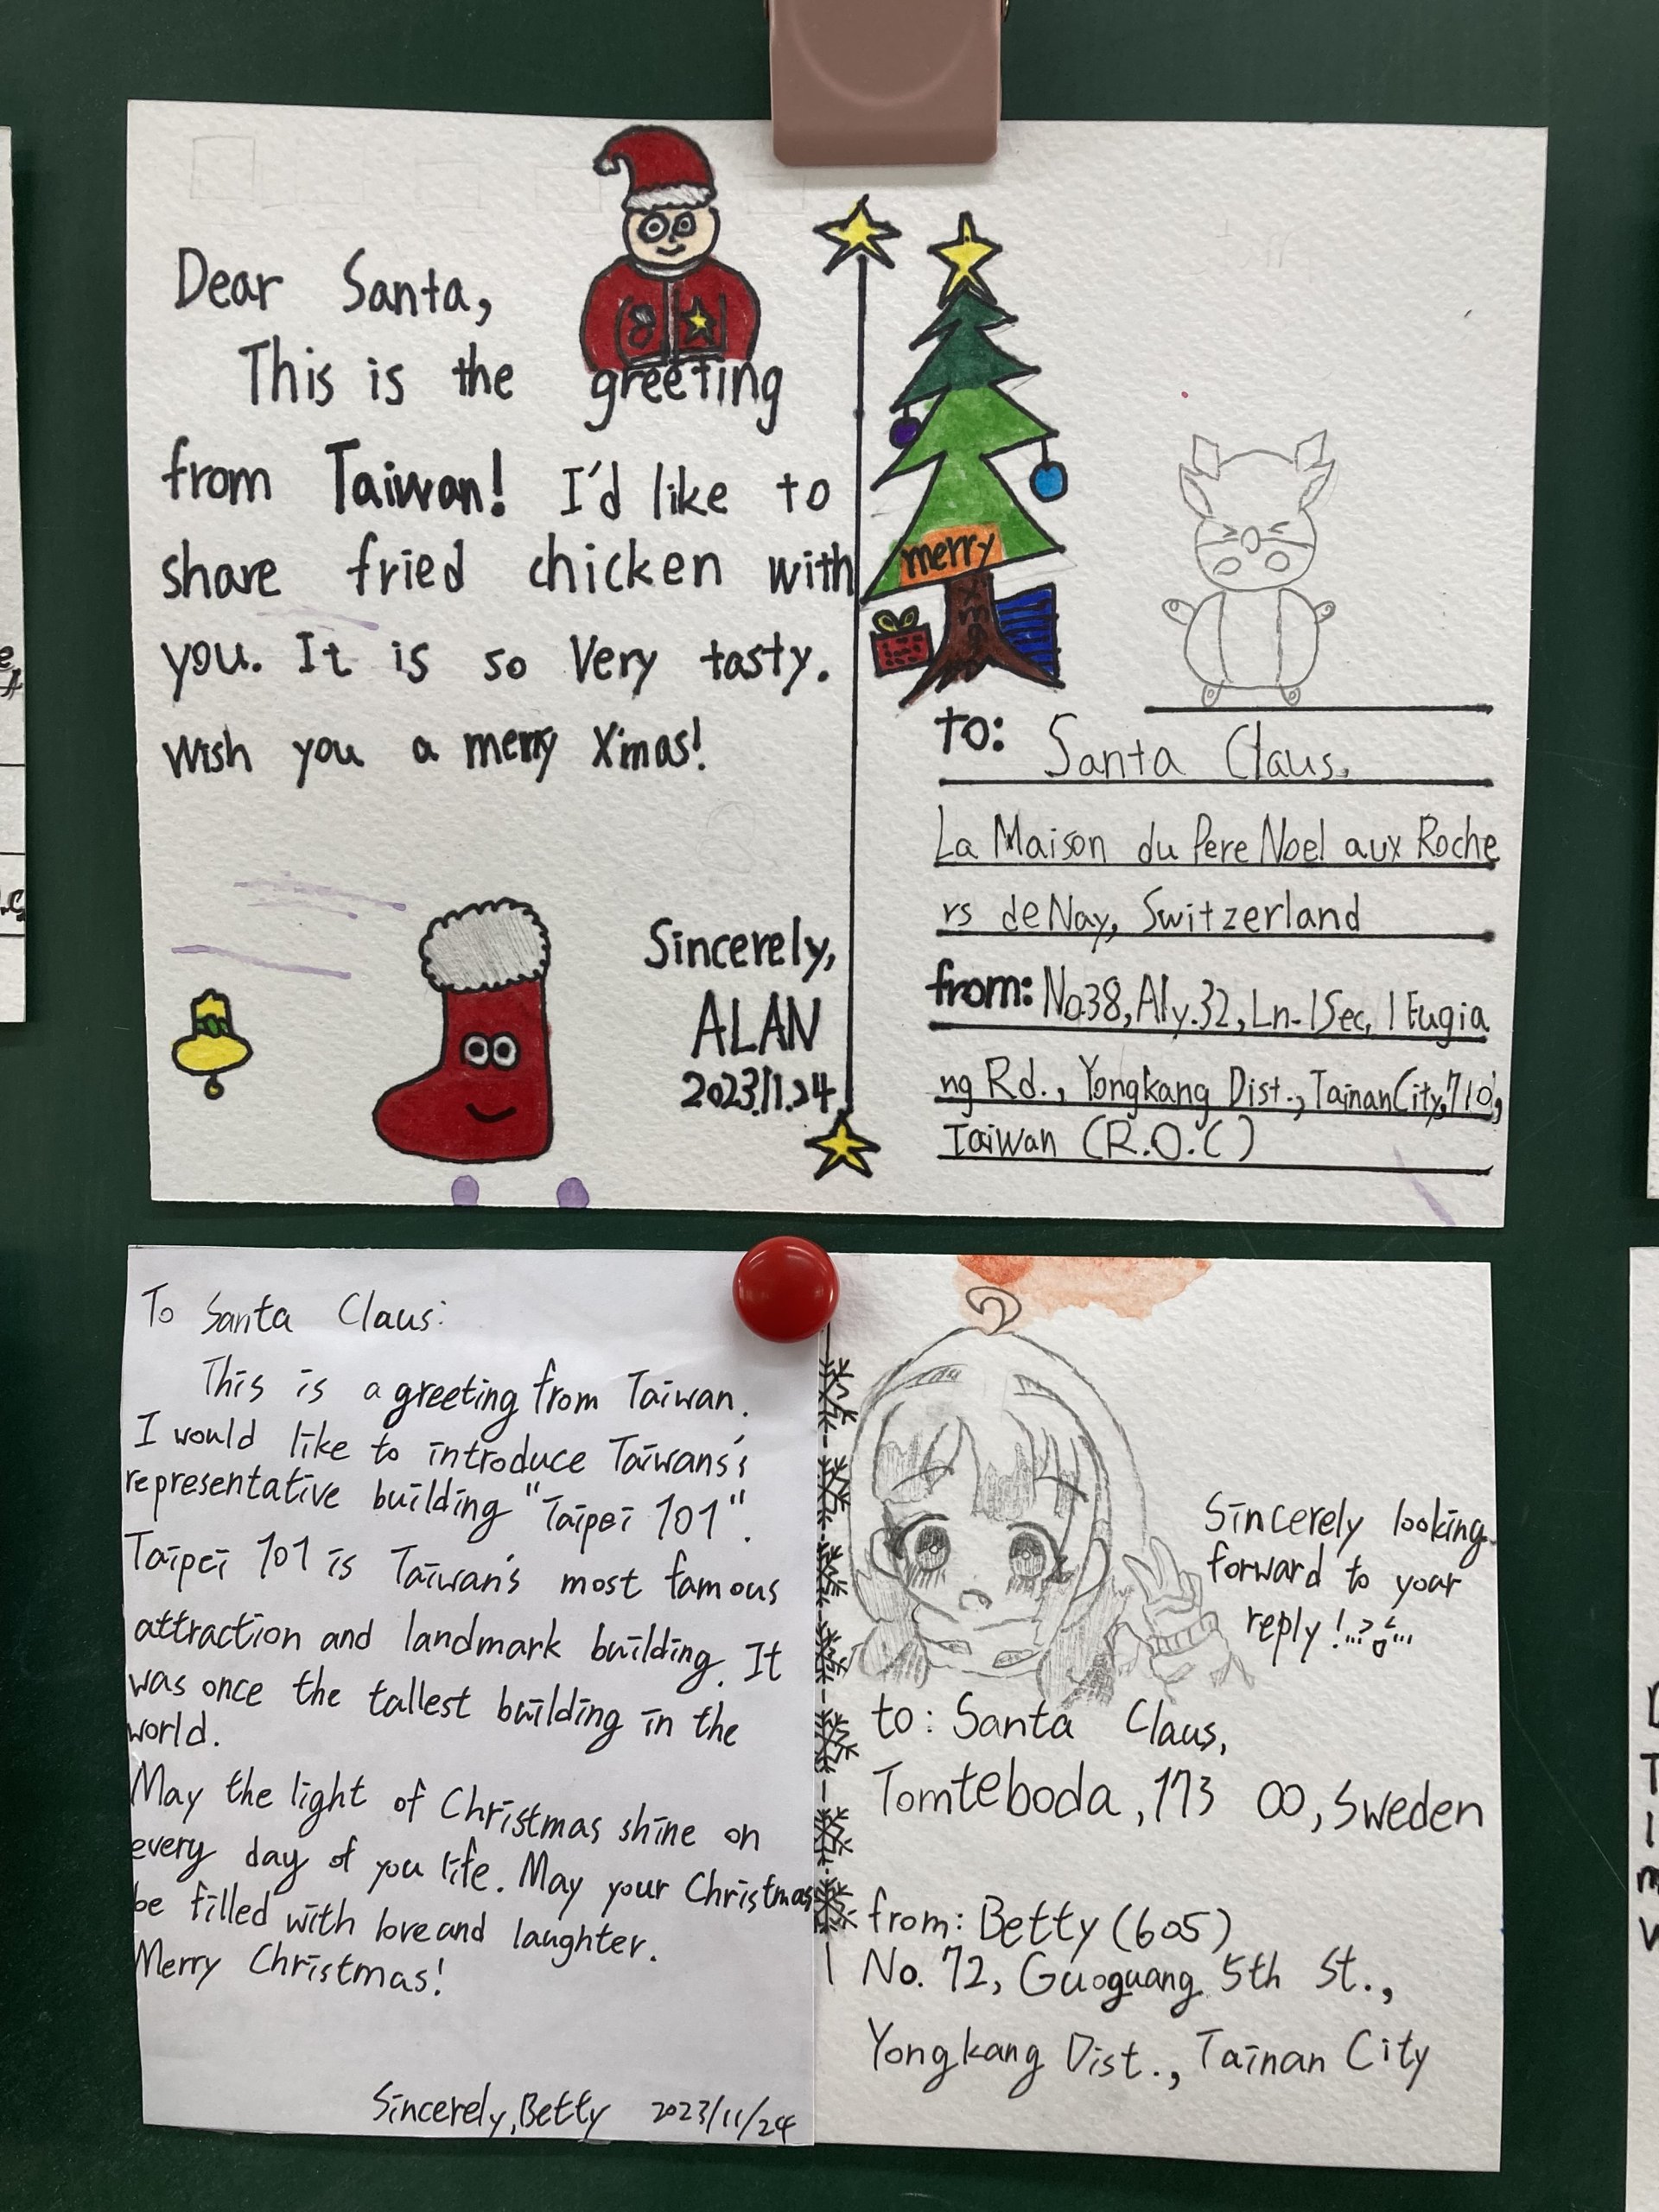 Dear Santa,
This is the greeting
from Taiwan! I'd like to
share fried chicken with
you. It is so Very tasty.
Wish you a merry X'mas!
Sincerely,
ALAN
2023.11.24
merry
xmas
to: Santa Claus,
La Maison du Pere Noel aux Roche
rs de Nay, Switzerland
from: No.38, Aly.32, Ln.1 Sec, 1 Fugia
ng Rd., Yongkang Dist., Tainan City, 710,
Taiwan (R.O.C)
To Santa Claus:
This is a greeting from Taiwan.
I would like to introduce Taiwans's
representative building "Taipei 101".
Taipei 101 is Taiwan's most famous
attraction and landmark building. It
was once the tallest building in the
world.
May the light of Christmas shine on
every day of you life. May your Christmas
be filled with love and laughter.
Merry Christmas!
Sincerely, Betty 2023/11/24
Sincerely looking
forward to your
reply!
to: Santa Claus,
Tomteboda, 173 00, Sweden
from: Betty (605)
No. 72, Guoguang 5th St.,
Yongkang Dist., Tainan City